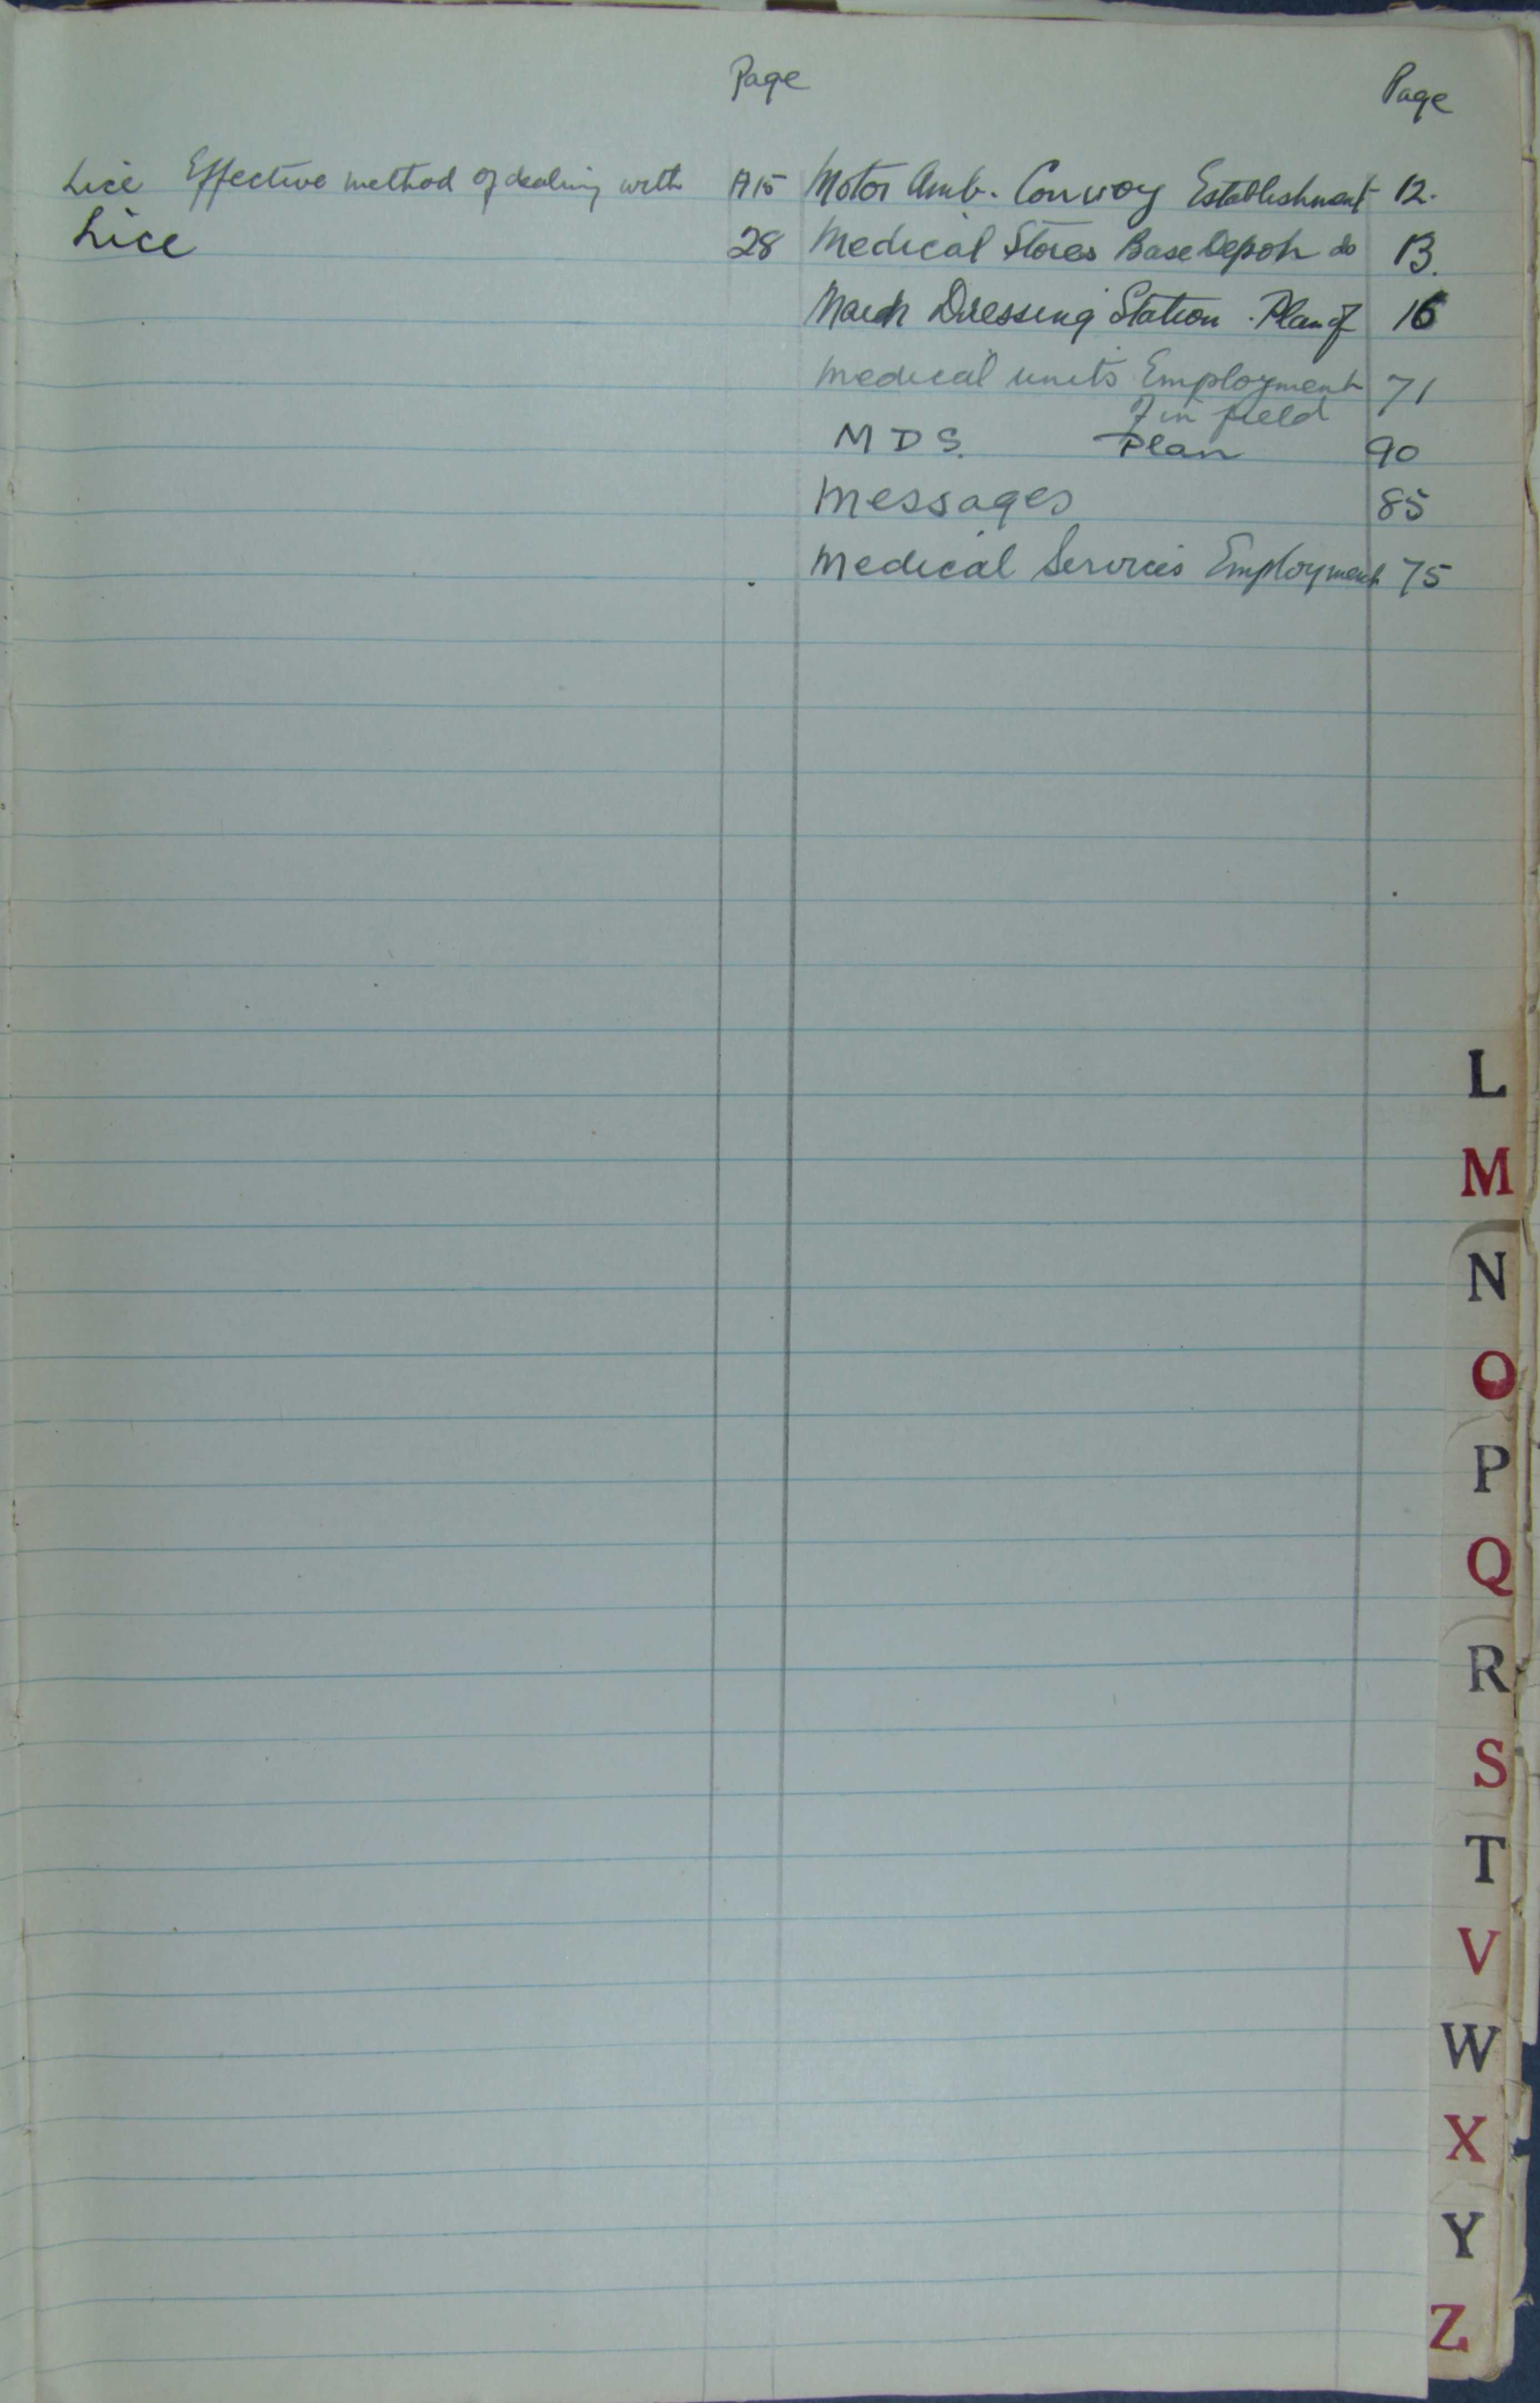 Page
Lice Effective method of dealing with A15
Lice 28
Page
Motor Amb. Convoy Establishment 12.
Medical Stores Base Depot do 13.
Dressing Station. Plan of 16
Medical units Employment 71
of in field
M D S. Plan 90
Messages 85
Medical Services Employment 75
L
M
N
O
P
Q
R
S
T
V
W
X
Y
Z